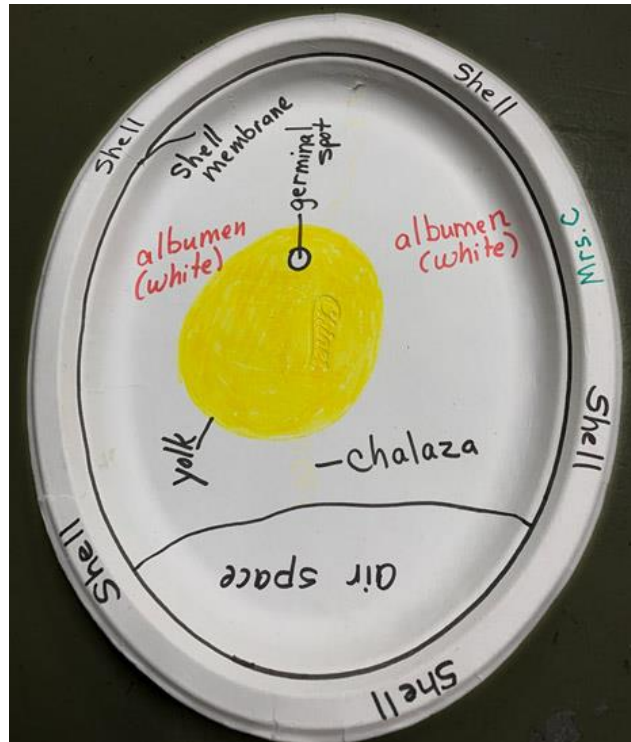 Shell
Shell
Shell
membrane
germinal
spot
albumen
(white)
albumen
(white)
Mrs. C
Chinet
yolk
Chalaza
Shell
air space
Shell
Shell